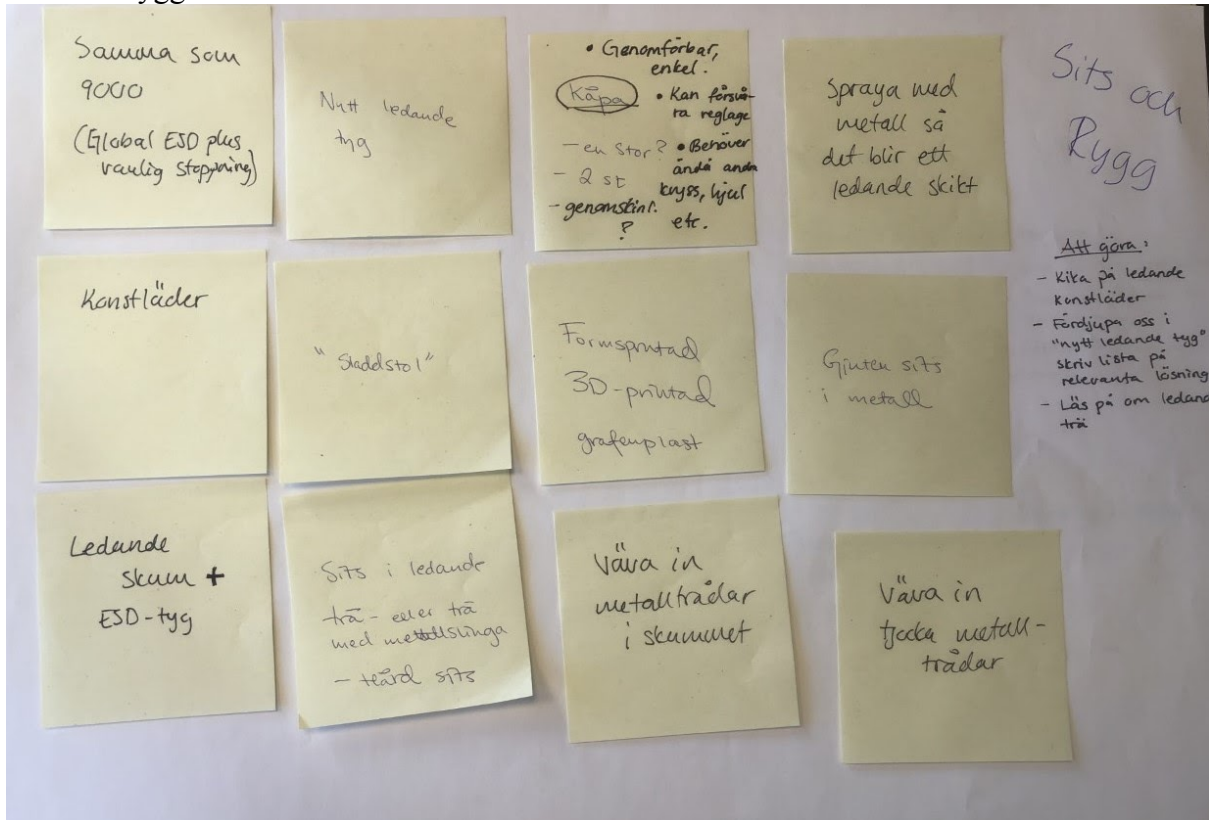 ygg
Samma som
9000
(Global ESD plus
vanlig stoppning)
Nytt ledande
tyg
• Genomförbar,
enkel.
Kåpa
• Kan försvå-
ra reglage
- en stor?
- 2 st
- genomskinl.
?
• Behöver
ändå andra
kryss, hjul
etc.
Spraya med
metall så
det blir ett
ledande skikt
Sits och
Rygg
Att göra:
- Kika på ledande
konstläder
- Fördjupa oss i
"nytt ledande tyg"
skriv lista på
relevanta lösning
- Läs på om ledand
trä
Konstläder
"Sladdstol"
Formsprutad
3D-printad
grafenplast
Gjuten sits
i metall
Ledande
skum +
ESD-tyg
Sits i ledande
trä - eller trä
med metallslinga
- Hård sits
Väva in
metalltrådar
i skummet
Väva in
tjocka metall-
trådar